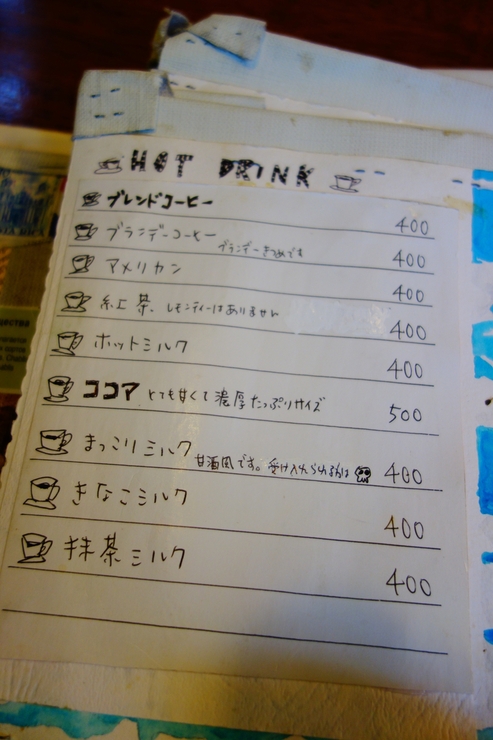 HOT DRINK
ブレンドコーヒー 400
ブランデーコーヒー ブランデーきつめです 400
アメリカン 400
紅茶. レモンティーはありません 400
ホットミルク 400
ココア とても甘くて濃厚たっぷりサイズ 500
まっこりミルク 甘酒風です。受け入れられるかは 400
きなこミルク 400
抹茶ミルク 400